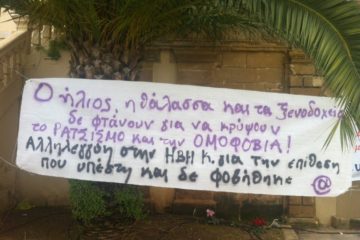 Ο ήλιος, η θάλασσα και τα ξενοδοχεία
δε φτάνουν για να κρύψουν
το ΡΑΤΣΙΣΜΟ και την ΟΜΟΦΟΒΙΑ!
Αλληλεγγύη στην ΗΒΗ Κ. για την επίθεση
που υπέστη και δε φοβήθηκε